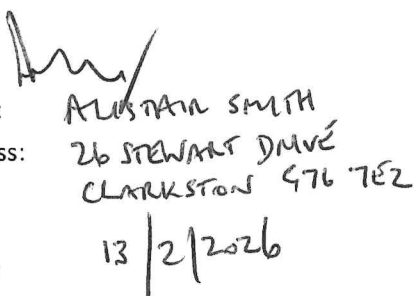 :
ALISTAIR SMITH
ss: 26 STEWART DRIVE
CLARKSTON G76 7EZ
13/2/2026